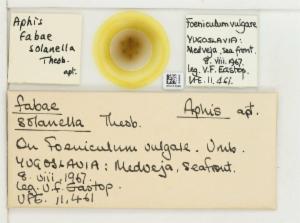 Aphis
fabae
solanella
Theob.
apt.
Foeniculum vulgare
YUGOSLAVIA:
Medveja, sea front.
8. viii. 1967.
leg. V.F. Eastop.
VFE. 11.461.
fabae Aphis apt.
solanella Theob.
On Foeniculum vulgare. Umb.
YUGOSLAVIA: Medveja, seafront.
8. viii. 1967.
leg. V.f. Eastop.
VFE. 11.461